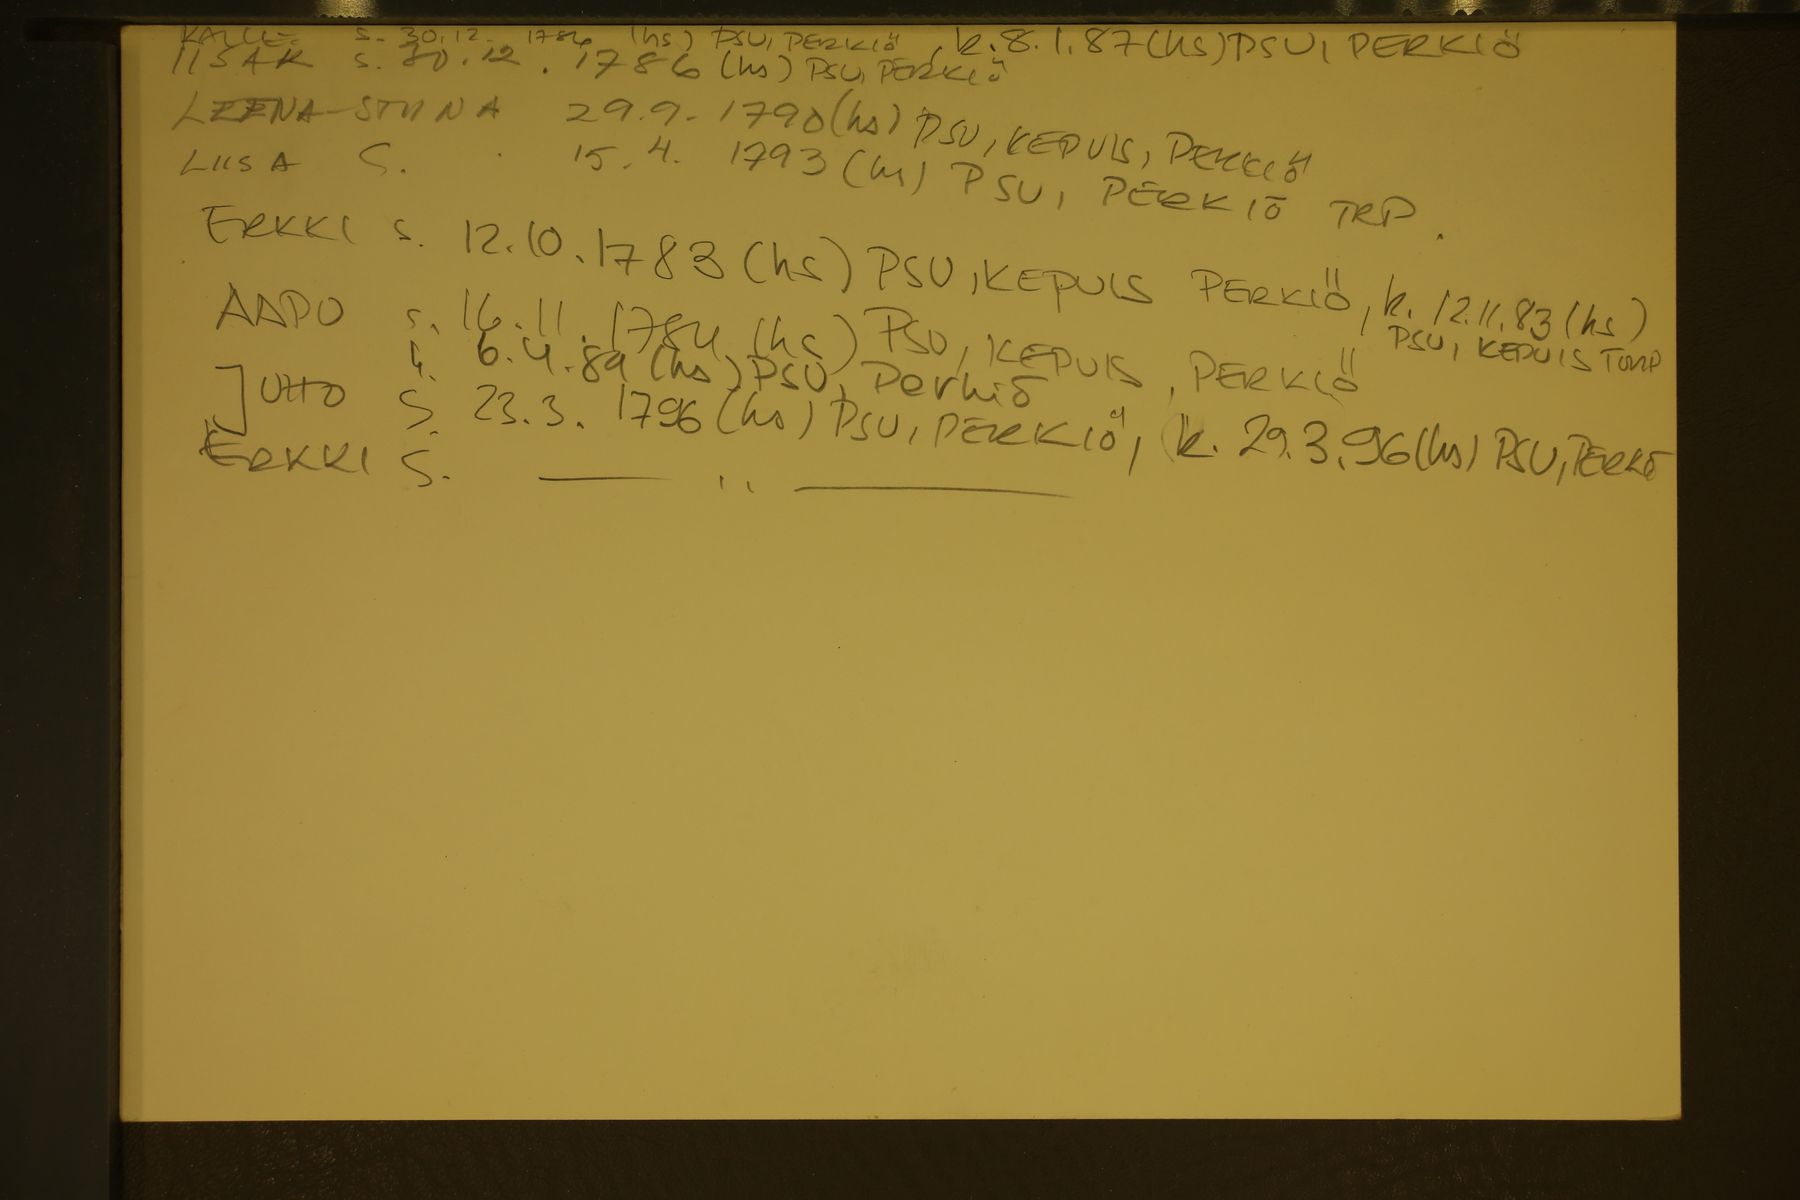 KALLE s. 30.12. 1786 (hs) PSU, PERKIÖ, k. 8.1.87 (hs) PSU, PERKIÖ
IISAK s. 30.12. 1786 (hs) PSU, PERKIÖ
LEENA-STIINA 29.9. 1790 (hs) PSU, KEPUIS, PERKIÖ
LIISA S. 15.4. 1793 (hs) PSU, PERKIÖ TRP.
ERKKI s. 12.10.1783 (hs) PSU, KEPUIS PERKIÖ, k. 12.11.83 (hs)
PSU, KEPUIS
AAPO s. 16.11.1784 (hs) PSU, KEPUIS, PERKIÖ
k. 6.4.89 (hs) PSU, Perkiö
] UTTO S. 23.3. 1796 (hs) PSU, PERKIÖ, k. 29.3.96 (hs) PSU, PERKIÖ
ERKKI S. —— ,, ——